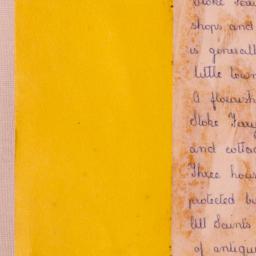 Stoke Fer
shops, and
is generall
little town
A flourish
Stoke Fer
and cotta
Three hous
protected b
All Saints
of antiqu